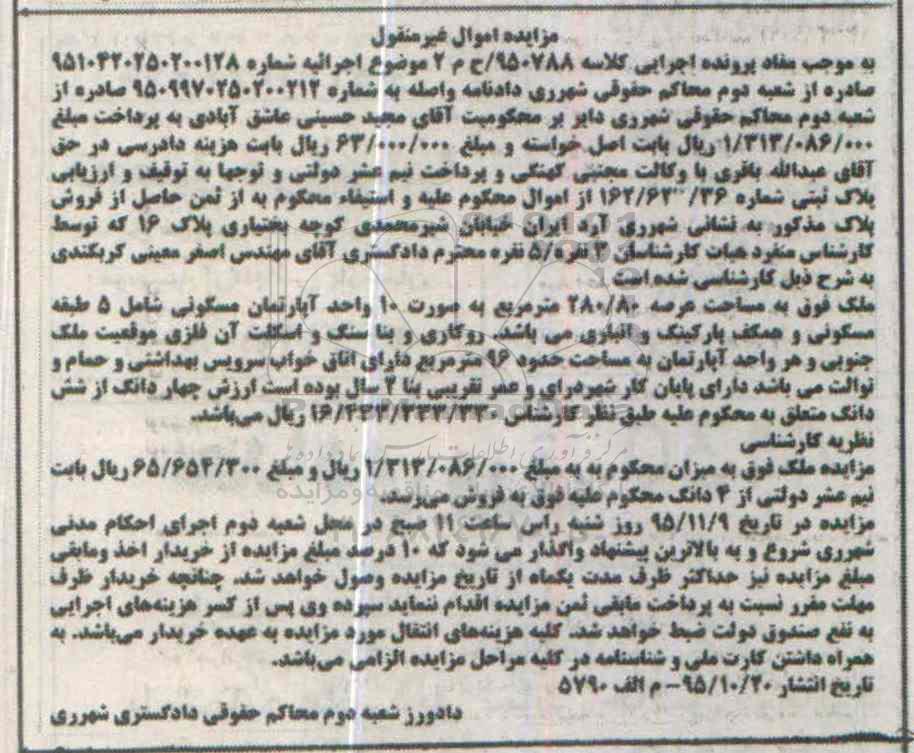 مزایده اموال غیرمنقول
به موجب مفاد پرونده اجرایی کلاسه ۹۵۰۷۸۸/ح م ۲ موضوع اجرائیه شماره ۹۵۱۰۴۲۰۲۵۰۲۰۰۱۲۸
صادره از شعبه دوم محاکم حقوقی شهرری دادنامه واصله به شماره ۹۵۰۹۹۷۰۲۵۰۲۰۰۲۱۲ صادره از
شعبه دوم محاکم حقوقی شهرری دایر بر محکومیت آقای مجید حسینی عاشق آبادی به پرداخت مبلغ
۱/۳۱۳/۰۸۶/۰۰۰ ریال بابت اصل خواسته و مبلغ ۶۳/۰۰۰/۰۰۰ ریال بابت هزینه دادرسی در حق
آقای عبدالله باقری با وکالت مجتبی کهنگی و پرداخت نیم عشر دولتی و توجها به توقیف و ارزیابی
پلاک ثبتی شماره از اموال محکوم علیه و استیفاء محکوم به از ثمن حاصل از فروش
پلاک مذکور به نشانی شهرری آرد ایران خیابان شیرمحمدی کوچه بختیاری پلاک ۱۶ که توسط
کارشناس منفرد هیات کارشناسان ۳ نفره/۵ نفره محترم دادگستری آقای مهندس اصغر معینی کربکندی
به شرح ذیل کارشناسی شده است
ملک فوق به مساحت عرصه ۲۸۰/۸۰ مترمربع به صورت ۱۰ واحد آپارتمان مسکونی شامل ۵ طبقه
مسکونی و همکف پارکینگ و انباری می باشد. روکاری و بنا سنگ و اسکلت آن فلزی موقعیت ملک
جنوبی و هر واحد آپارتمان به مساحت حدود ۹۶ مترمربع دارای اتاق خواب سرویس بهداشتی و حمام و
توالت می باشد دارای پایان کار شهرداری و عمر تقریبی بنا ۲ سال بوده است ارزش چهار دانگ از شش
دانگ متعلق به محکوم علیه طبق نظر کارشناس ریال می‌باشد.
نظریه کارشناسی
مزایده ملک فوق به میزان محکوم به به مبلغ ۱/۳۱۳/۰۸۶/۰۰۰ ریال و مبلغ ۶۵/۶۵۴/۳۰۰ ریال بابت
نیم عشر دولتی از ۴ دانگ محکوم علیه فوق به فروش می‌رسد.
مزایده در تاریخ ۹۵/۱۱/۹ روز شنبه راس ساعت ۱۱ صبح در محل شعبه دوم اجرای احکام مدنی
شهرری شروع و به بالاترین پیشنهاد واگذار می شود که ۱۰ درصد مبلغ مزایده از خریدار اخذ ومابقی
مبلغ مزایده نیز حداکثر ظرف مدت یکماه از تاریخ مزایده وصول خواهد شد. چنانچه خریدار ظرف
مهلت مقرر نسبت به پرداخت مابقی ثمن مزایده اقدام ننماید سپرده وی پس از کسر هزینه‌های اجرایی
به نفع صندوق دولت ضبط خواهد شد. کلیه هزینه‌های انتقال مورد مزایده به عهده خریدار می‌باشد. به
همراه داشتن کارت ملی و شناسنامه در کلیه مراحل مزایده الزامی می‌باشد.
تاریخ انتشار ۹۵/۱۰/۲۰- م الف ۵۷۹۰
دادورز شعبه دوم محاکم حقوقی دادگستری شهرری